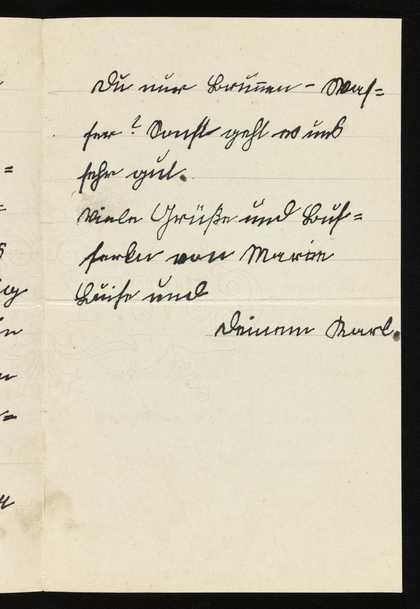 Du nur Brunnen-Was=
ser? Sonst geht es uns
sehr gut.
Viele Grüße und Bus=
serln von Marie
Luise und
Deinem Karl.